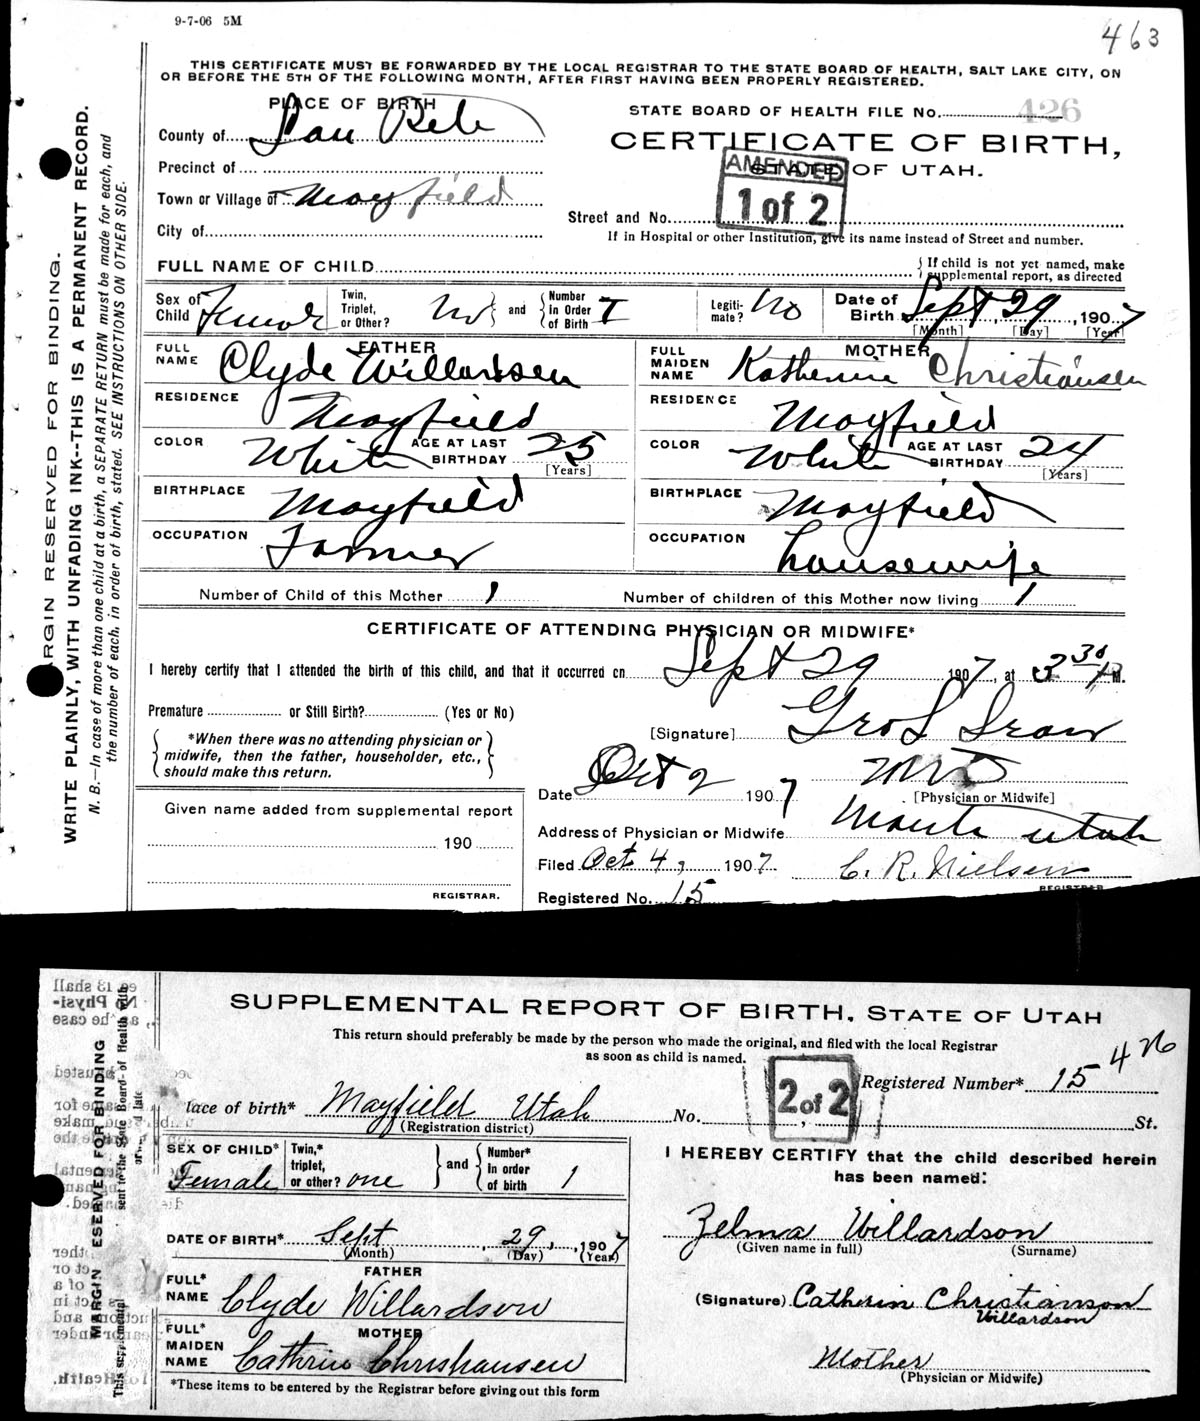 9-7-06 5M
463
THIS CERTIFICATE MUST BE FORWARDED BY THE LOCAL REGISTRAR TO THE STATE BOARD OF HEALTH, SALT LAKE CITY, ON
OR BEFORE THE 5TH OF THE FOLLOWING MONTH, AFTER FIRST HAVING BEEN PROPERLY REGISTERED.
PLACE OF BIRTH
STATE BOARD OF HEALTH FILE No. 426
County of San Pete
CERTIFICATE OF BIRTH,
Precinct of
STATE OF UTAH.
AMENDED
1 of 2
Town or Village of Mayfield
Street and No.
City of
If in Hospital or other Institution, give its name instead of Street and number.
FULL NAME OF CHILD
If child is not yet named, make supplemental report, as directed
Sex of Child
Twin, Triplet, or Other? No and Number in Order of Birth 1
Legitimate? No
Date of Birth Sept 29, 1907
[Month] [Day] [Year]
FATHER
FULL NAME Clyde Willardsen
MOTHER
FULL MAIDEN NAME Katherine Christiansen
RESIDENCE Mayfield
RESIDENCE Mayfield
COLOR White AGE AT LAST BIRTHDAY 25 [Years]
COLOR White AGE AT LAST BIRTHDAY 24 [Years]
BIRTHPLACE Mayfield
BIRTHPLACE Mayfield
OCCUPATION Farmer
OCCUPATION housewife
Number of Child of this Mother 1
Number of children of this Mother now living 1
CERTIFICATE OF ATTENDING PHYSICIAN OR MIDWIFE*
I hereby certify that I attended the birth of this child, and that it occurred on Sept 29 1907, at 3 30 M.
Premature or Still Birth? (Yes or No)
[Signature]
*When there was no attending physician or
midwife, then the father, householder, etc.,
should make this return.
MD
[Physician or Midwife]
Date Oct 2 1907
Given name added from supplemental report
190
REGISTRAR.
Address of Physician or Midwife Manti Utah
Filed Oct 4, 1907. C. R. Nielsen
REGISTRAR
Registered No. 15
ARGIN RESERVED FOR BINDING.
WRITE PLAINLY, WITH UNFADING INK--THIS IS A PERMANENT RECORD.
N. B.—In case of more than one child at a birth, a SEPARATE RETURN must be made for each, and
the number of each, in order of birth, stated. SEE INSTRUCTIONS ON OTHER SIDE.
SUPPLEMENTAL REPORT OF BIRTH, STATE OF UTAH
This return should preferably be made by the person who made the original, and filed with the local Registrar
as soon as child is named.
2 of 2
Registered Number* 15 426
lace of birth* Mayfield Utah No. St.
(Registration district)
SEX OF CHILD* Female
Twin,* triplet, or other? one and Number* in order of birth 1
I HEREBY CERTIFY that the child described herein
has been named:
DATE OF BIRTH* Sept 29, 1907
(Month) (Day) (Year)
Zelma Willardson
(Given name in full) (Surname)
FATHER
FULL* NAME Clyde Willardson
(Signature) Catherin Christianson
Willardson
MOTHER
FULL* MAIDEN NAME Cathrin Christiansen
Mother
(Physician or Midwife)
*These items to be entered by the Registrar before giving out this form
MARGIN ESERVED FOR BINDING